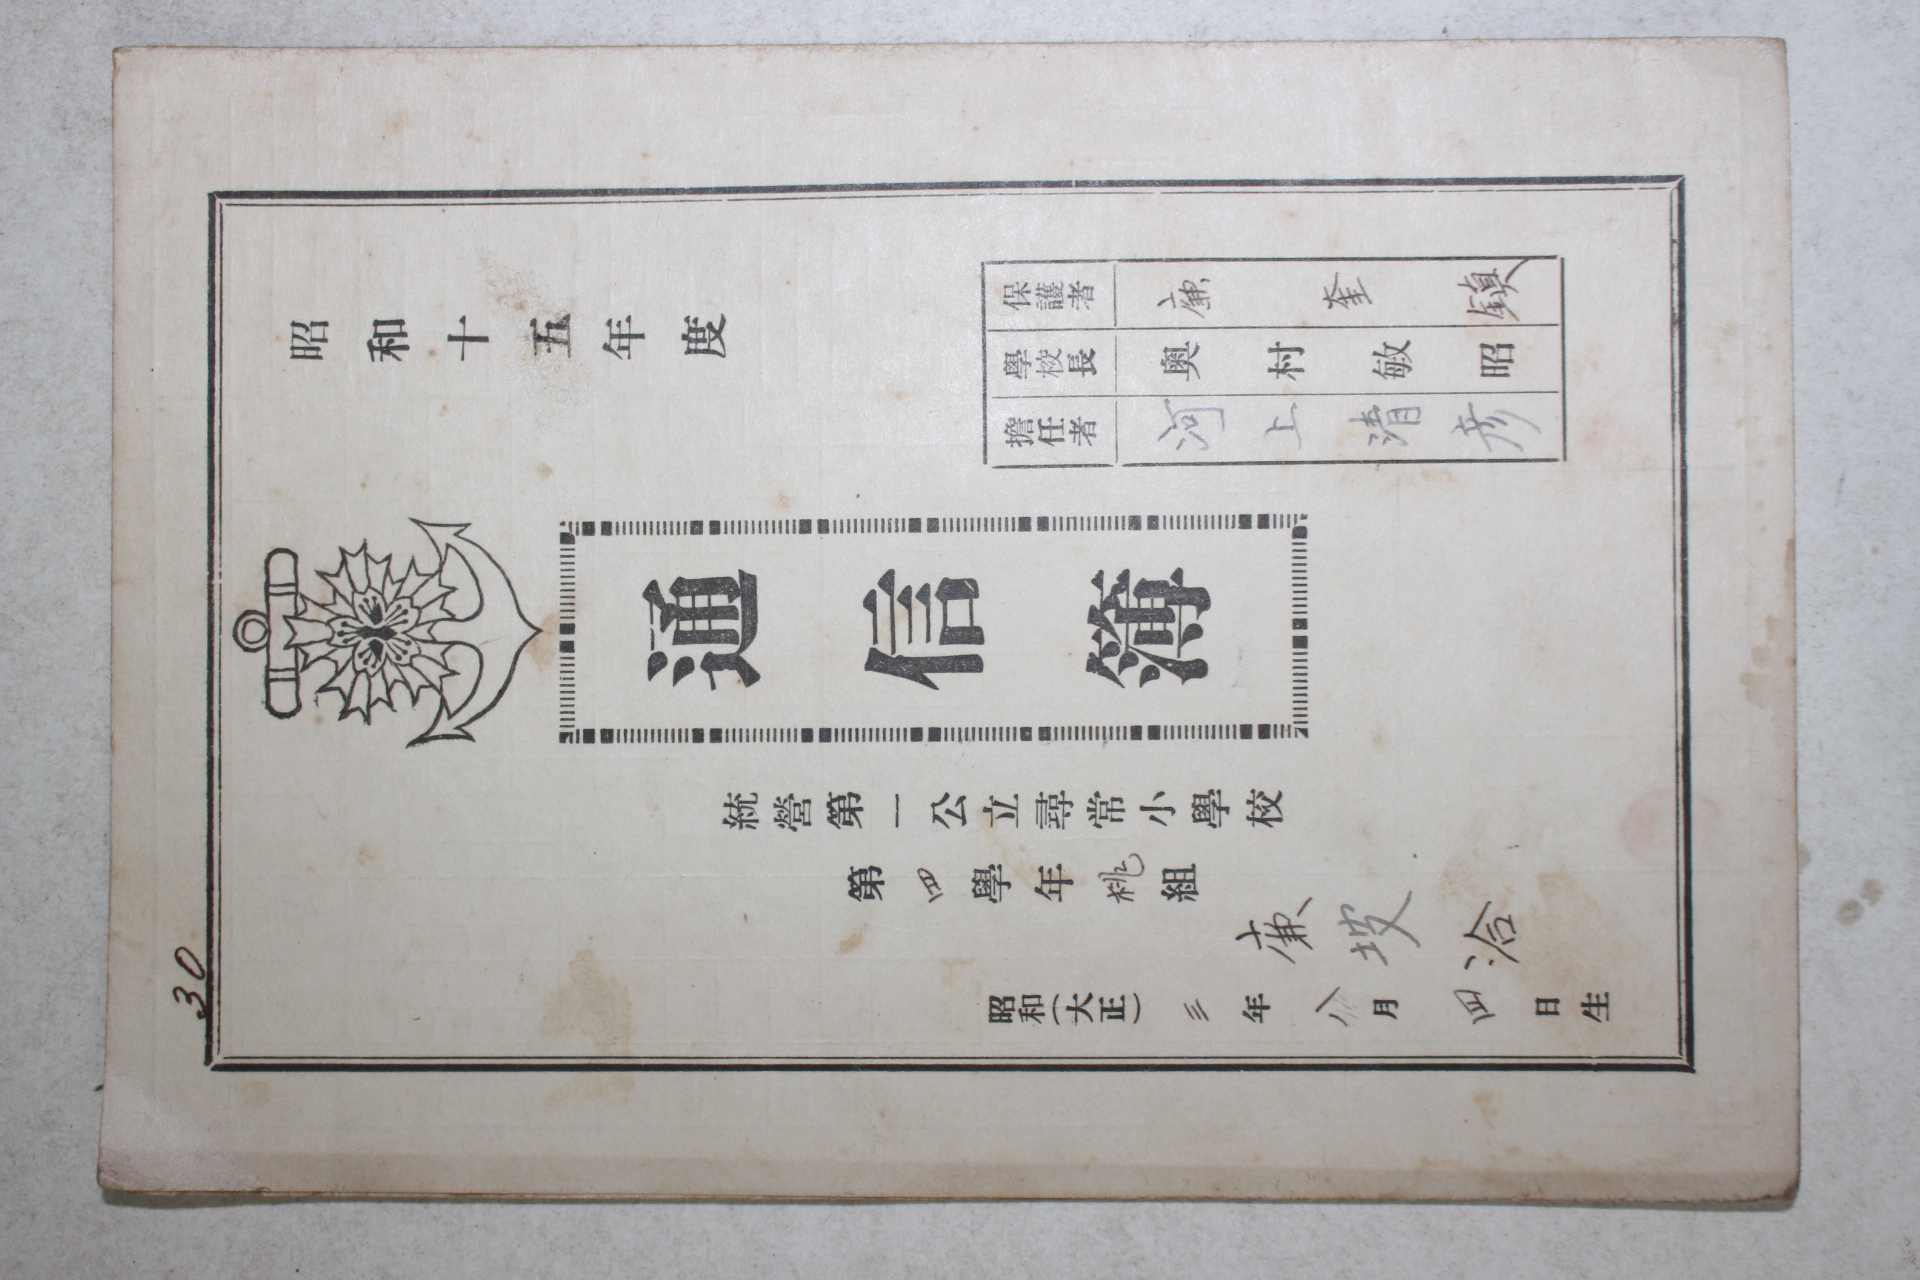 30
昭和十五年度
保護者 廉奎鎭
學校長 奧村敏昭
擔任者 河上清彦
通信簿
統營第一公立尋常小學校
第四學年桃組
廉坡洽
昭和(大正)三年八月四日生